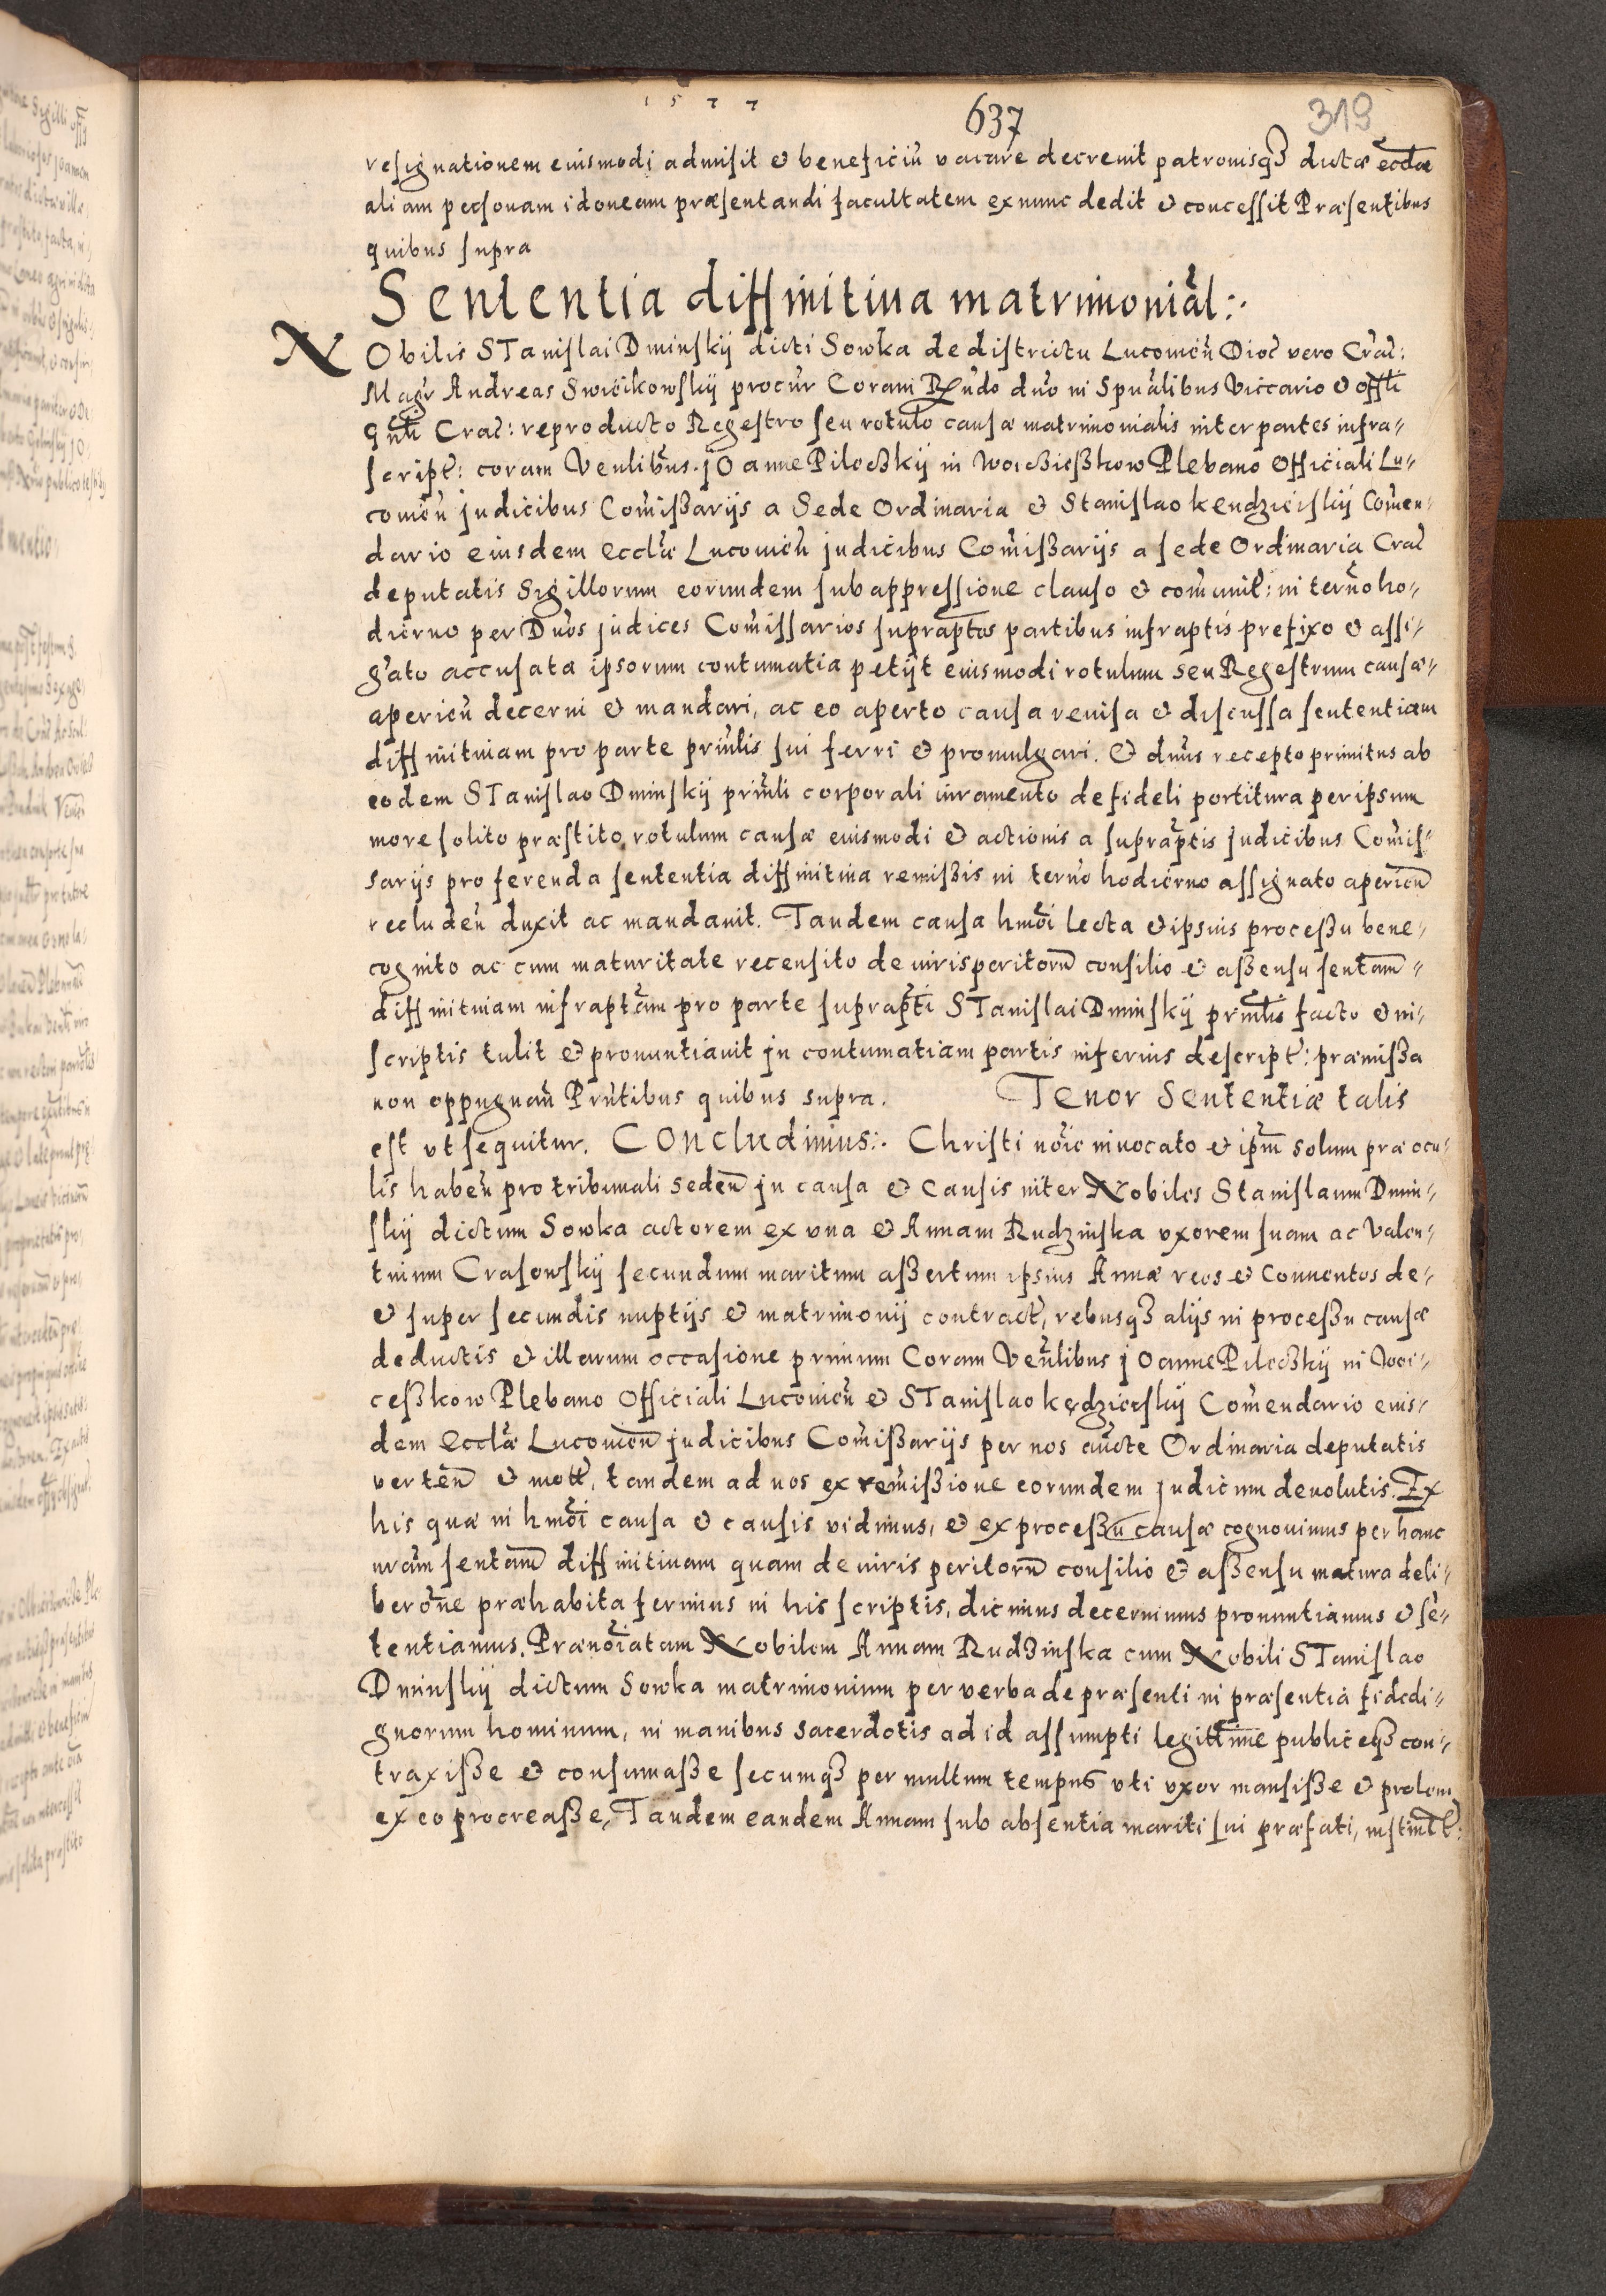 1577
637
319
resignationem eiusmodi admisit et beneficiū vacare decrevit patronisqȝ dictæ eccłæ
aliam personam idoneam præsentandi facultatem ex nunc dedit et concessit Præsentibus
quibus supra
Sententia diffinitiva matrimoniāl:.
NObilis STanislai Dminskÿ dicti Sowka de districtu Lucovieñ Dioc̃ vero Crac̃:
Mag̃r Andreas Swiėcikowskÿ procūr Coram Rñdo dño in Spūalibus Viccario et offłi
gñli Crac̃: reproducto Regestro seu rotulo causæ matrimonialis inter partes infra-
script̃: coram Veñlibus. jOanne Pilocßkÿ in Woicßießkow Plebano Officiali Lu-
covieñ judicibus Comißarijs a Sede Ordinaria et Stanislao Kendzierskÿ Comen-
dario eiusdem Eccłæ Lucovieñ judicibus Comißarijs a sede Ordinaria Crac̃
deputatis Sigillorum eorundem sub appressione clauso et comunit̃: in termo ho-
dierno per Dños judices Comissarios suprap̃tos partibus infrap̃tis prefixo et assi-
g̃ato accusata ipsorum contumatia petijt eiusmodi rotulum seu Regestrum causæ-
aperieñ decerni et mandari, ac eo aperto causa revisa et discussa sententiam
diffinitivam pro parte prinlis sui ferri et promulgari. Et dñus recepto primitus ab
eodem STanislao Dminskÿ prinli corporali iuramento de fideli portitura per ipsum
more solito præstito, rotulum causæ eiusmodi et actionis a suprap̃tis judicibus Comis-
sarijs pro ferenda sententia diffinitiva remißis in termo hodierno assignato aperieñ
recludeñ duxit ac mandavit. Tandem causa hm̃oi lecta et ipsius proceßu bene-
cognito ac cum maturitate recensito de iurisperitorū consilio et aßensu senta̅m-
diffinitivam infrap̃tam pro parte suprap̃ti STanislai Dminskÿ prinlis facto et in-
scriptis tulit et pronuntiavit jn contumatiam partis inferius descript̃: præmißa
non oppugnañ Prñtibus quibus supra. Tenor Sententiæ talis
est ut sequitur. COncludimus:. Christi nõie invocato et ipm̃ solum præ ocu-
lis habeñ pro tribunali sedeñ jn causa et Causis inter Nobiles Stanislaum Dmin-
skÿ dictum Sowka actorem ex una et Annam Rudzinska uxorem suam ac Valen-
tinum Crasowskÿ secundum maritum aßertum ipsius Annæ reos et Conventos de-
et super secundis nuptijs et matrimonij contract̃, rebusqȝ alijs in proceßu causæ
deductis et illarum occasione primum Coram Veñlibus jOanne Pilocßkÿ in Woi-
ceßkow Plebano Officiali Lucovieñ et STanislao Kędzierskÿ Comendario eius-
dem Eccłæ Lucovieñ judicibus Comißarijs per nos aūcte Ordinaria deputatis
verteñ et mot̃, tandem ad nos ex remißione eorundem judicum devolutis. Ex
his quæ in hm̃oi causa et causis vidimus, et ex proceßu causæ cognovimus per hanc
nr̃am senta̅m diffinitivam quam de iuris peritorū consilio et aßensu matura deli-
berõne præhabita ferimus in his scriptis, dicimus decernimus pronuntiamus et sē-
tentiamus. Prænõiatam Nobilem Annam Rudzinska cum Nobili STanislao
Dminskÿ dictum Sowka matrimonium per verba de præsenti in præsentia fidedi-
gnorum hominum, in manibus sacerdotis ad id assumpti legittime publiceqȝ con-
traxiße et consumaße secumqȝ per multum tempus uti uxor mansiße et prolem
ex eo procreaße, Tandem eandem Annam sub absentia mariti sui præfati,